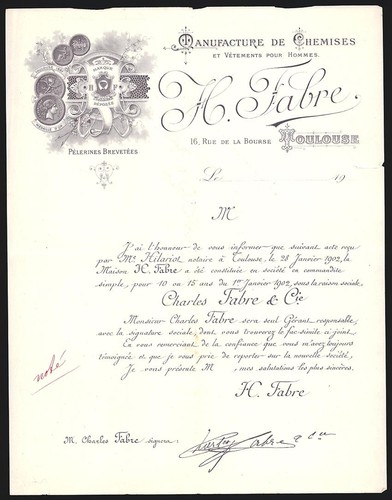 MANUFACTURE DE CHEMISES
ET VÊTEMENTS POUR HOMMES.
MARQUE
H F
DÉPOSÉE
H. Fabre.
PÈLERINES BREVETÉES
16, RUE DE LA BOURSE TOULOUSE
Le 19
M
J'ai l'honneur de vous informer que suivant acte reçu
par Me Hilariot notaire à Toulouse, le 28 Janvier 1902, la
Maison H. Fabre a été constituée en société en commandite
simple, pour 10 ou 15 ans du 1er Janvier 1902, sous la raison sociale.
Charles Fabre & Cie
Monsieur Charles Fabre sera seul Gérant responsable,
avec la signature sociale dont vous trouverez le fac-simile ci-joint.
En vous remerciant de la confiance que vous m'avez toujours
témoignée et que je vous prie de reporter sur la nouvelle société,
Je vous présente M , mes salutations les plus sincères.
noté
H. Fabre
M. Charles Fabre signera:
Charles Fabre & Cie